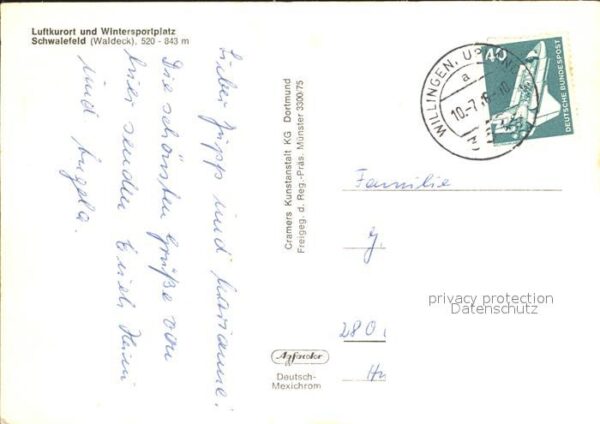 Luftkurort und Wintersportplatz
Schwalefeld (Waldeck), 520 - 843 m
Lieber Jupp und Marianne!
Die schönsten Grüße von
hier senden Euch Heini
und Angela.
Cramers Kunstanstalt KG Dortmund
Freigeg. d. Reg.-Präs. Münster 3300/75
Agfacolor
Deutsch-
Mexichrom
40
DEUTSCHE BUNDESPOST
WILLINGEN, UPLAND
a
10.-7.
Familie
privacy protection
Datenschutz
280